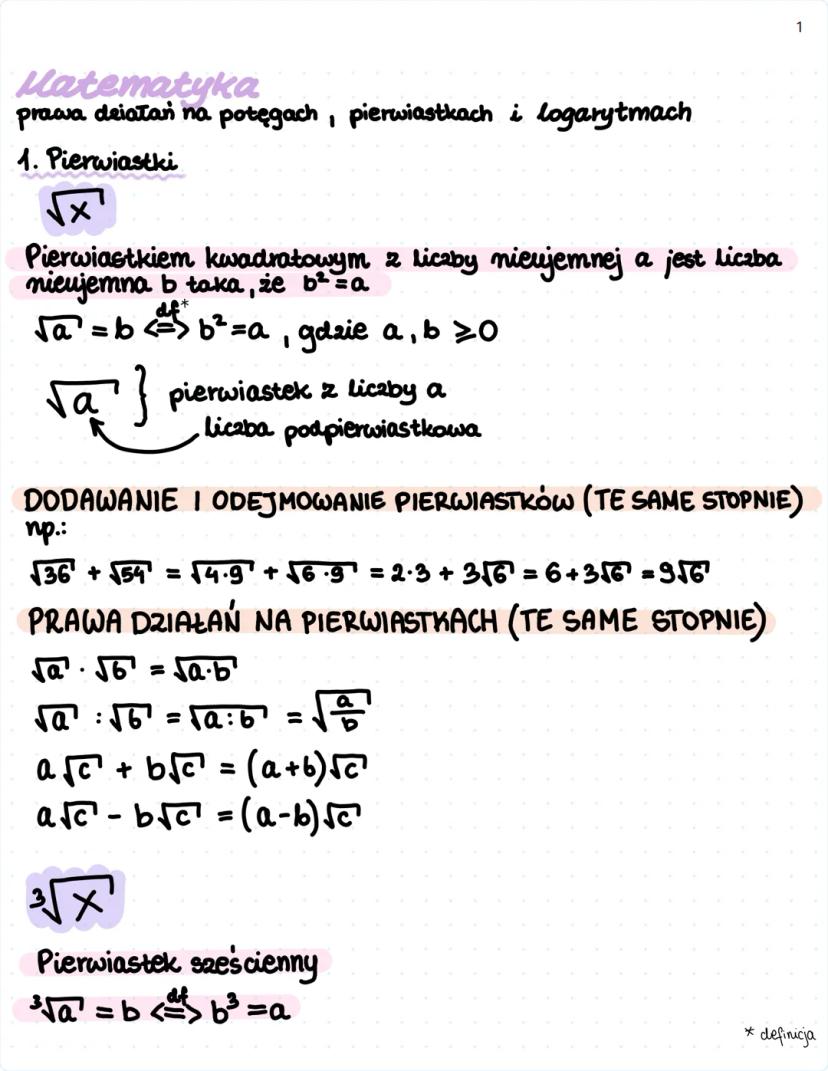 1
Matematyka
prawa działań na potęgach, pierwiastkach i logarytmach
1. Pierwiastki
√x
Pierwiastkiem kwadratowym z liczby nieujemnej a jest liczba
nieujemna b taka, że b²=a
√a = b <=> b²=a, gdzie a, b ⩾0
df*
√a } pierwiastek z liczby a
liczba podpierwiastkowa
DODAWANIE I ODEJMOWANIE PIERWIASTKÓW (TE SAME STOPNIE)
np.:
√36 + √54 = √4·9 + √6·9 = 2·3 + 3√6 = 6+3√6 = 9√6
PRAWA DZIAŁAŃ NA PIERWIASTKACH (TE SAME STOPNIE)
√a · √b = √a·b
√a : √b = √a:b = √a/b
a√c + b√c = (a+b)√c
a√c - b√c = (a-b)√c
³√x
Pierwiastek sześcienny
³√a = b <=> b³ = a
df
* definicja